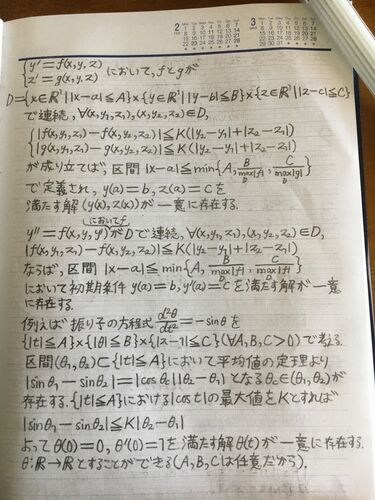 2
3
{y'=f(x,y,z)
{z'=g(x,y,z) において,fとgが
D={x∈ℝ¹||x-a|≦A}×{y∈ℝ¹||y-b|≦B}×{z∈ℝ¹||z-c|≦C}
で連続,∀(x,y₁,z₁),(x,y₂,z₂)∈D,
{|f(x,y₁,z₁)-f(x,y₂,z₂)|≦K(|y₂-y₁|+|z₂-z₁|)
{|g(x,y₁,z₁)-g(x,y₂,z₂)|≦K(|y₂-y₁|+|z₂-z₁|)
が成り立てば,区間|x-a|≦min{A, B/max_D|f|, C/max_D|g|}
で定義され,y(a)=b,z(a)=cを
満たす解(y(x),z(x))が一意に存在する.
においてf
y''=f(x,y,y')がDで連続,∀(x,y₁,z₁),(x,y₂,z₂)∈D,
|f(x,y₁,z₁)-f(x,y₂,z₂)|≦K(|y₂-y₁|+|z₂-z₁|)
ならば,区間|x-a|≦min{A, B/max_D|f|, C/max_D|f|}
において初期条件 y(a)=b,y'(a)=cを満たす解が一意
に存在する.
例えば振り子の方程式 d²θ/dt²=-sinθを
{|t|≦A}×{|θ|≦B}×{|z-1|≦C}(∀A,B,C>0)で考える.
区間(θ₁,θ₂)⊂{|t|≦A}において平均値の定理より
|sinθ₁-sinθ₂|=|cosθc||θ₂-θ₁|となるθc∈(θ₁,θ₂)が
存在する.{|t|≦A}における|cost|の最大値をKとすれば
|sinθ₁-sinθ₂|≦K|θ₂-θ₁|
よってθ(0)=0,θ'(0)=1を満たす解θ(t)が一意に存在する.
θ:ℝ→ℝとすることができる(A,B,Cは任意だから).